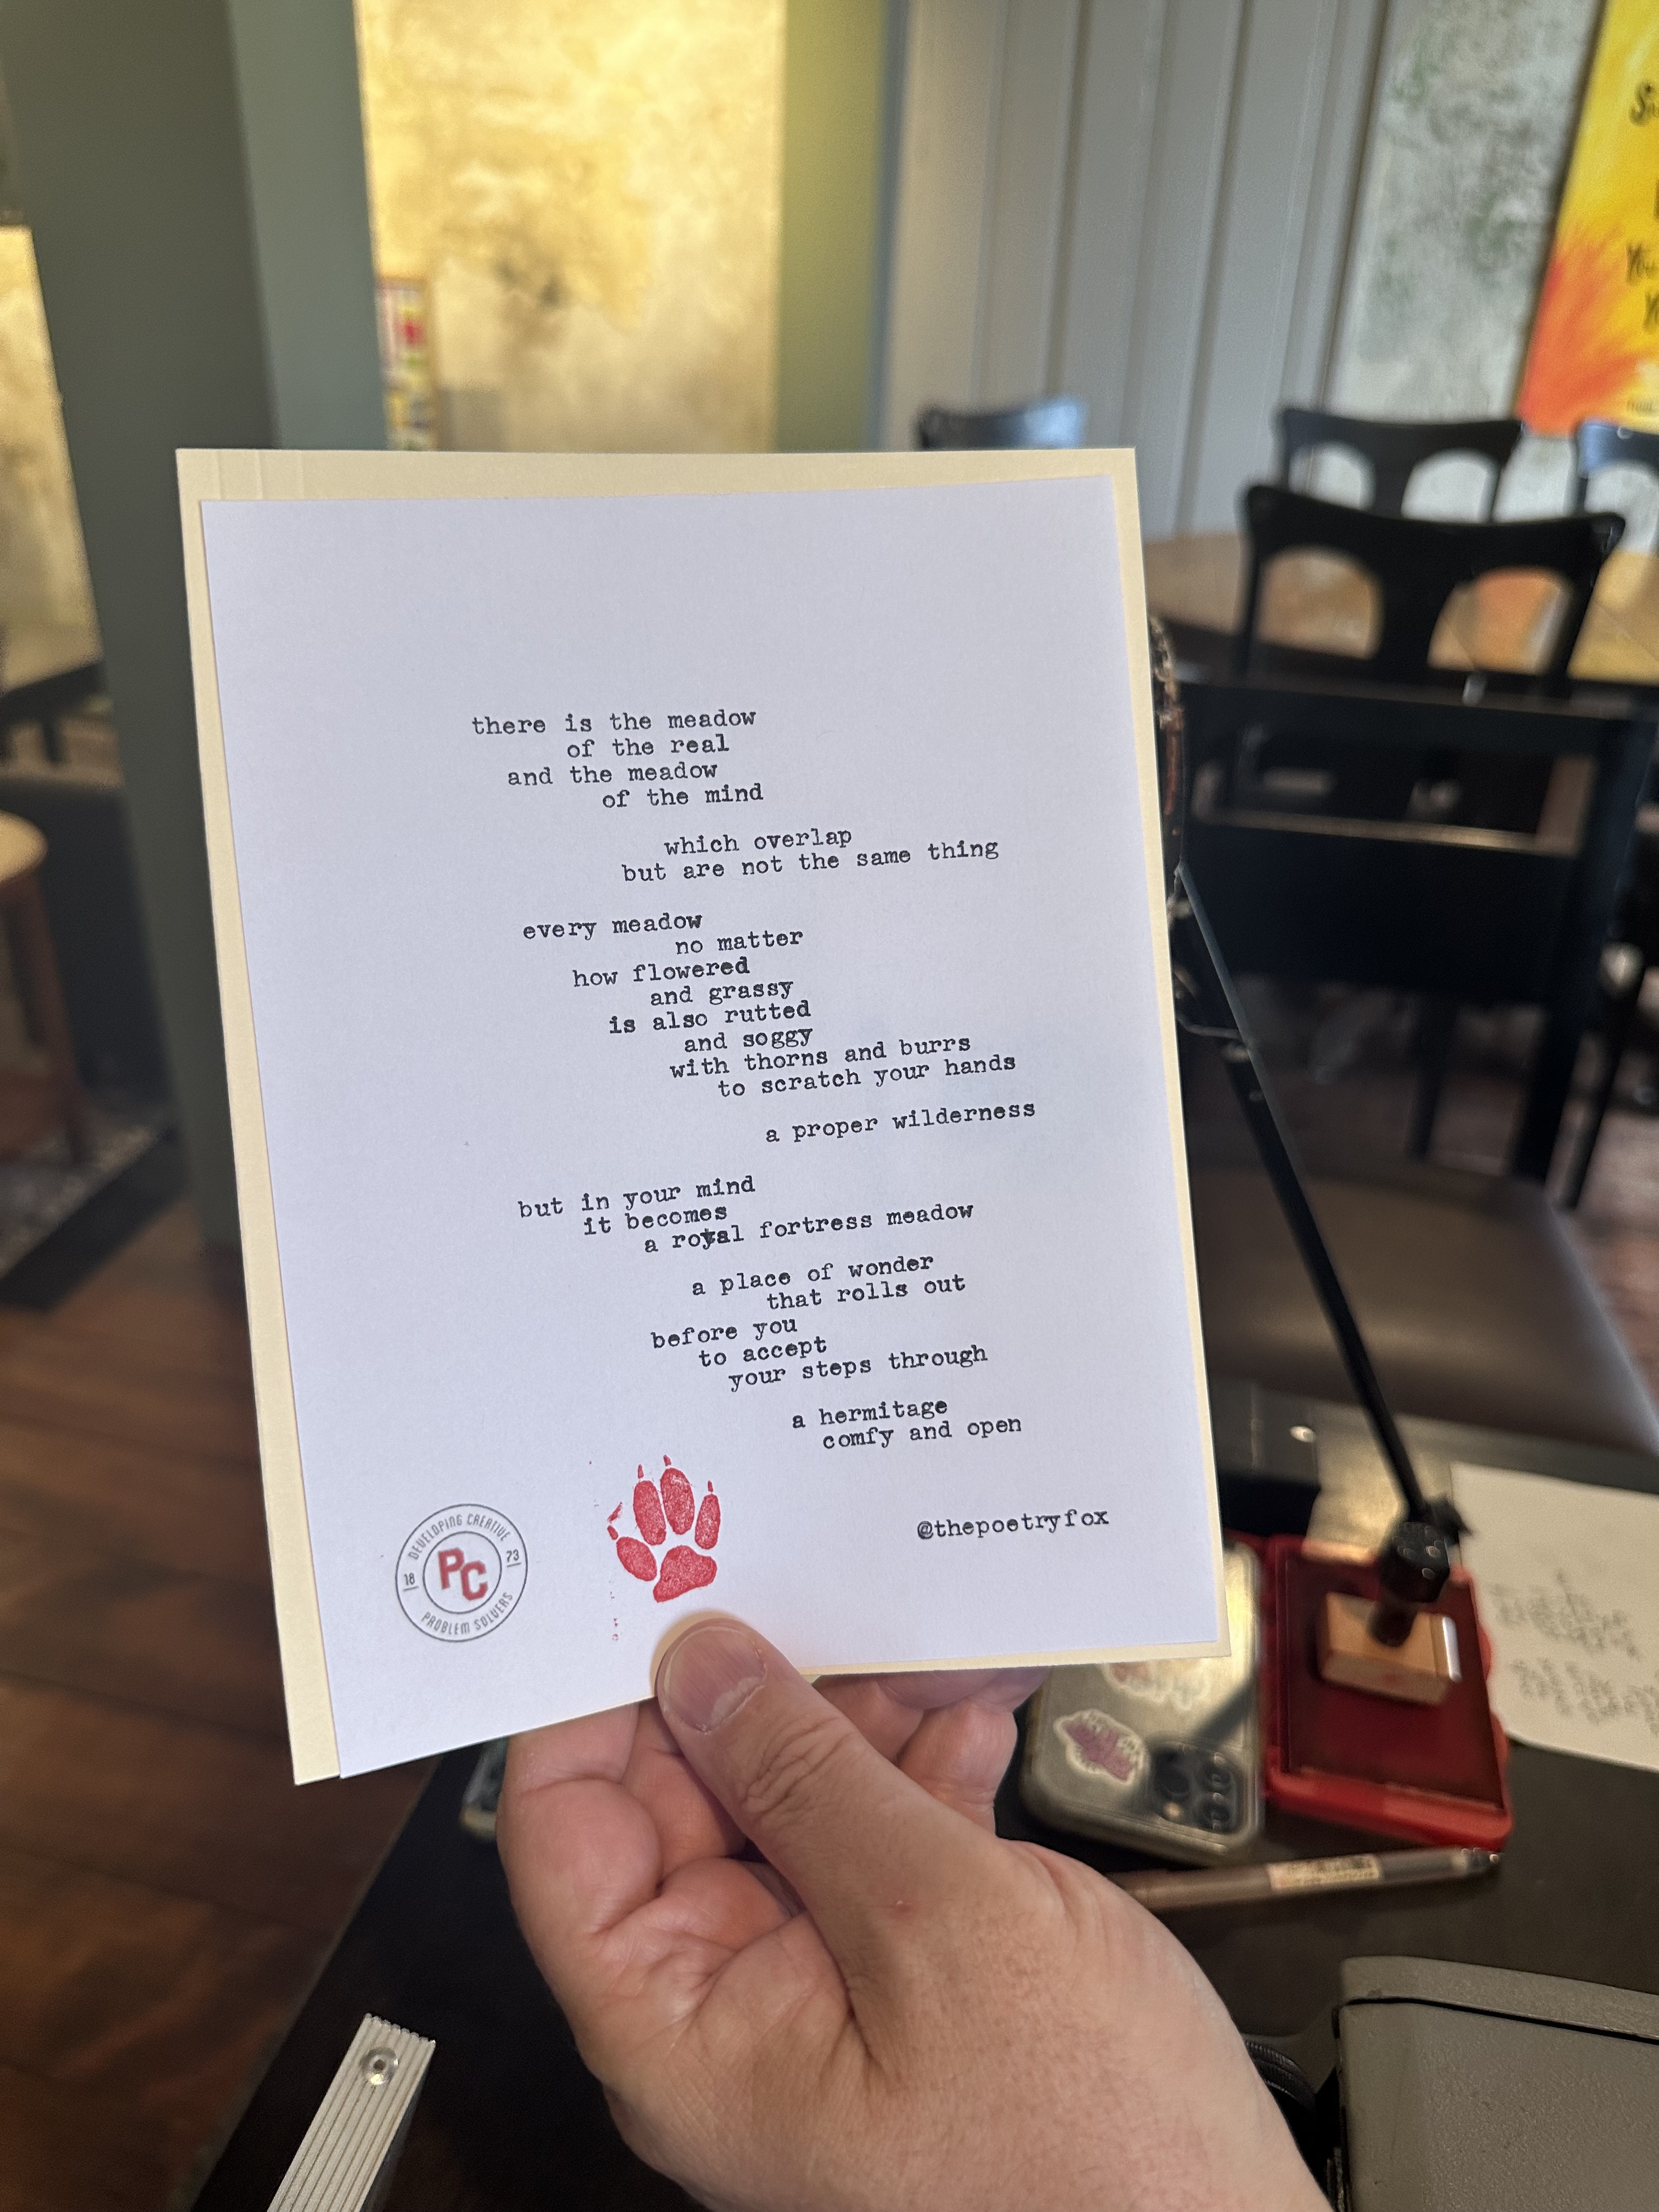 there is the meadow
of the real
and the meadow
of the mind
which overlap
but are not the same thing
every meadow
no matter
how flowered
and grassy
is also rutted
and soggy
with thorns and burrs
to scratch your hands
a proper wilderness
but in your mind
it becomes
a royal fortress meadow
a place of wonder
that rolls out
before you
to accept
your steps through
a hermitage
comfy and open
@thepoetryfox
DEVELOPING CREATIVE
18 PC 73
PROBLEM SOLVERS